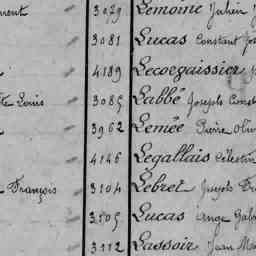 3079 Lemoine Julien
3081 Lucas Constant
4189 Lecorgaissier
Louis 3085 Labbé Joseph
3962 Lemée Pierre
4146 Legallais Célestin
François 3104 Lebret Joseph
3105 Lucas Ange
3112 Lassoir Jean